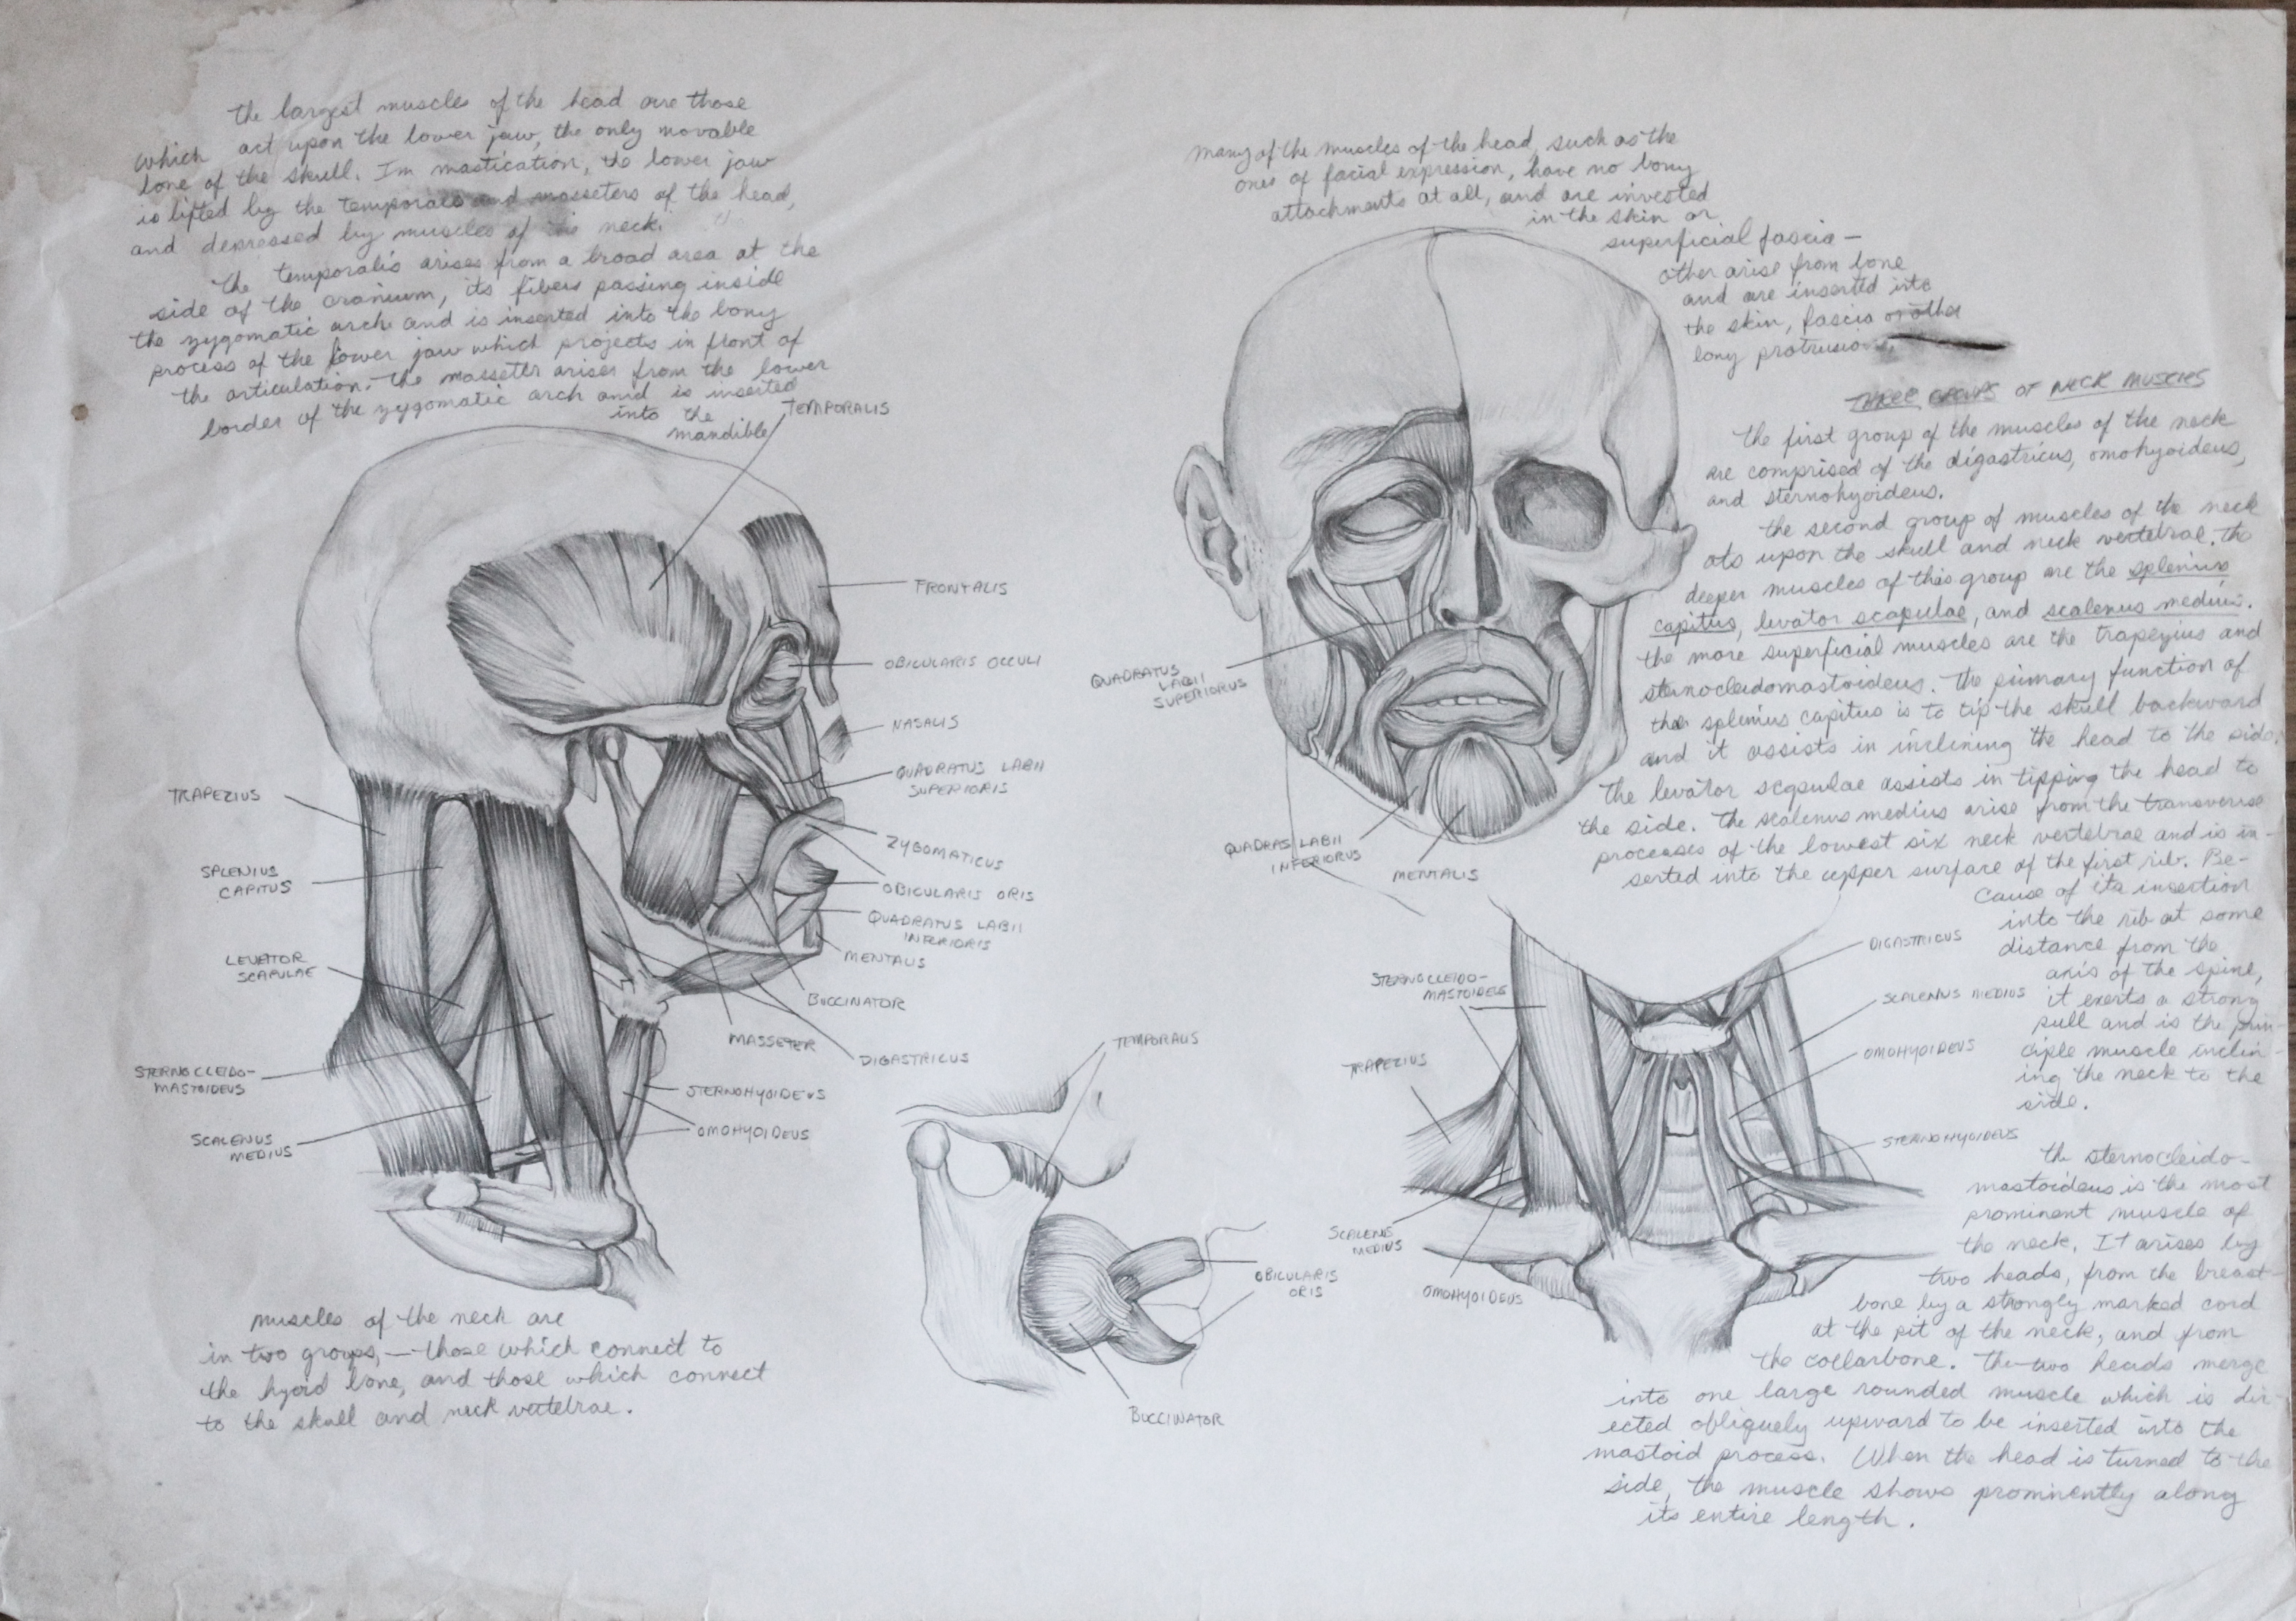 the largest muscles of the head are those
which act upon the lower jaw, the only movable
bone of the skull. In mastication, the lower jaw
is lifted by the temporals and masseters of the head,
and depressed by muscles of the neck.
the temporalis arises from a broad area at the
side of the cranium, its fibers passing inside
the zygomatic arch and is inserted into the bony
process of the lower jaw which projects in front of
the articulation. The masseter arises from the lower
border of the zygomatic arch and is inserted
into the
mandible
TEMPORALIS
FRONTALIS
OBICULARIS OCCULI
NASALIS
QUADRATUS LABII
SUPERIORIS
ZYGOMATICUS
OBICULARIS ORIS
QUADRATUS LABII
INFERIORIS
MENTALIS
BUCCINATOR
MASSETER
DIGASTRICUS
STERNOHYOIDEUS
OMOHYOIDEUS
TRAPEZIUS
SPLENIUS
CAPITUS
LEVATOR
SCAPULAE
STERNOCLEIDO-
MASTOIDEUS
SCALENUS
MEDIUS
muscles of the neck are
in two groups,—those which connect to
the hyoid bone, and those which connect
to the skull and neck vertebrae.
TEMPORALIS
OBICULARIS
ORIS
BUCCINATOR
many of the muscles of the head, such as the
ones of facial expression, have no bony
attachments at all, and are invested
in the skin or
superficial fascia—
other arise from bone
and are inserted into
the skin, fascia or other
bony protrusio
QUADRATUS
LABII
SUPERIORUS
QUADRAS LABII
INFERIORUS
MENTALIS
THREE GROUPS OF NECK MUSCLES
the first group of the muscles of the neck
are comprised of the digastricus, omohyoideus,
and sternohyoideus.
the second group of muscles of the neck
ats upon the skull and neck vertebrae. the
deeper muscles of this group are the splenius
capitus, levator scapulae, and scalenus medius.
the more superficial muscles are the trapezius and
sternocleidomastoideus. The primary function of
the splenius capitus is to tip the skull backward
and it assists in inclining the head to the side.
the levator scapulae assists in tipping the head to
the side. The scalenus medius arise from the transverse
processes of the lowest six neck vertebrae and is in-
serted into the upper surface of the first rib. Be-
cause of its insertion
into the rib at some
distance from the
axis of the spine,
it exerts a strong
pull and is the prin-
ciple muscle inclin-
ing the neck to the
side.
the sternocleido-
mastoideus is the most
prominent muscle of
the neck. It arises by
two heads, from the breast-
bone by a strongly marked cord
at the pit of the neck, and from
the collarbone. The two heads merge
into one large rounded muscle which is dir-
ected obliquely upward to be inserted into the
mastoid process. When the head is turned to the
side, the muscle shows prominently along
its entire length.
STERNOCLEIDO-
MASTOIDEUS
TRAPEZIUS
SCALENUS
MEDIUS
OMOHYOIDEUS
DIGASTRICUS
SCALENUS MEDIUS
OMOHYOIDEUS
STERNOHYOIDEUS